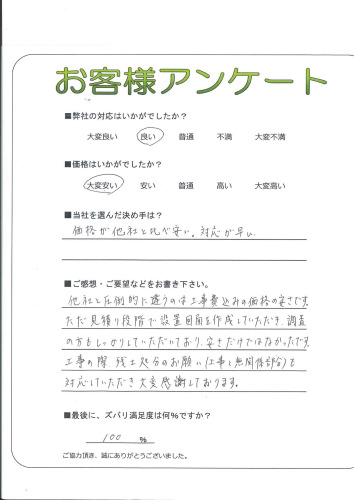 お客様アンケート
■弊社の対応はいかがでしたか?
大変良い 良い 普通 不満 大変不満
■価格はいかがでしたか?
大変安い 安い 普通 高い 大変高い
■当社を選んだ決め手は?
価格が他社と比べ安い。対応が早い。
■ご感想・ご要望などをお書き下さい。
他社と圧倒的に違うのは工事費込みの価格の安さです。
ただ見積り段階で設置図面を作成していただき、調査
の方もしっかりしていただいており、安さだけではなかったです。
工事の際、残土処分のお願い(工事と無関係部分)も
対応していただき大変感謝しております。
■最後に、ズバリ満足度は何%ですか?
100 %
ご協力頂き、誠にありがとうございました。